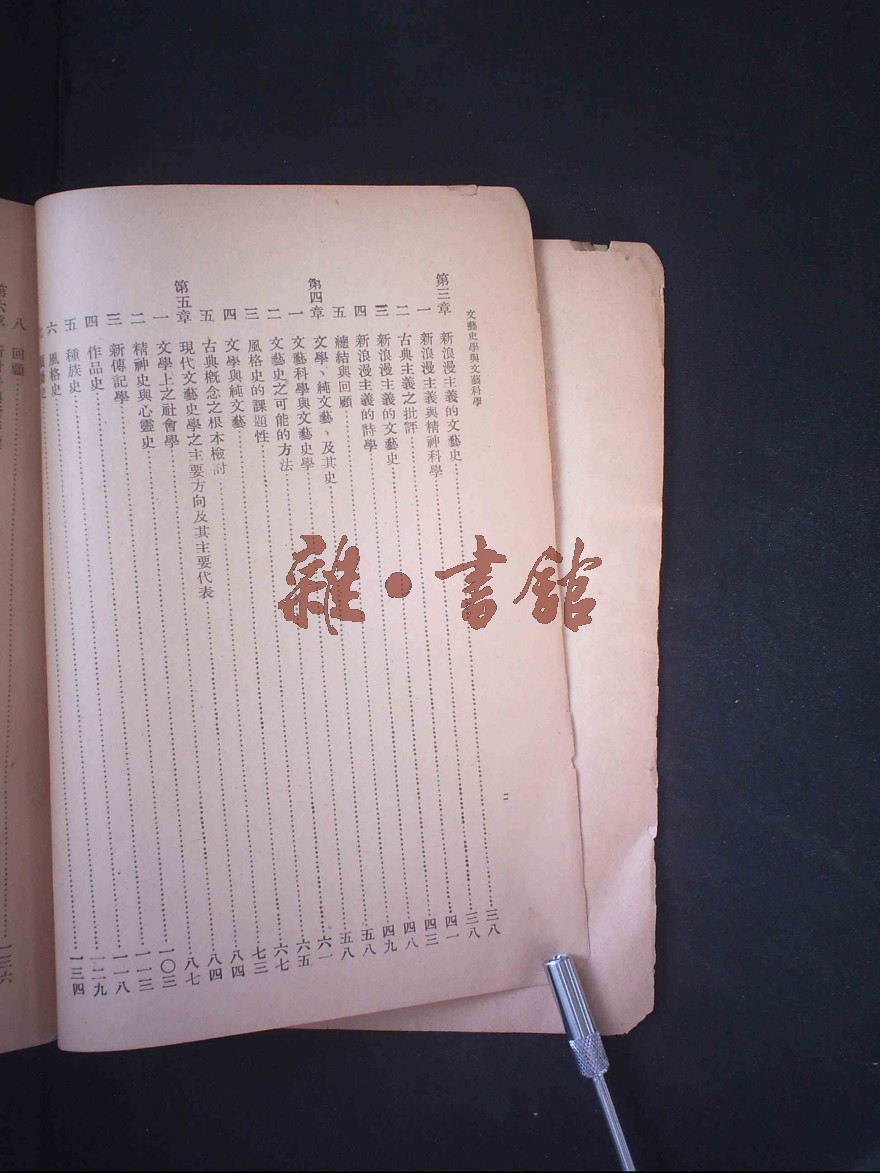 文藝史學與文藝科學
第三章 新浪漫主義的文藝史……三八
一 新浪漫主義與精神科學……三八
二 古典主義之批評……四一
三 新浪漫主義的文藝史……四三
四 新浪漫主義的詩學……四八
五 總結與回顧……四九
第四章 文學、純文藝、及其史……五八
一 文藝科學與文藝史學……五八
二 文藝史之可能的方法……六一
三 風格史的課題性……六五
四 文學與純文藝……六七
五 古典概念之根本檢討……七三
第五章 現代文藝史學之主要方向及其主要代表……八四
一 文學上之社會學……八四
二 精神史與心靈史……八七
三 新傳記學……一〇三
四 作品史……一一三
五 種族史……一一八
六 風格史……一二九
史……一三四
八 回顧……一三六
第六章
二
雜·書館